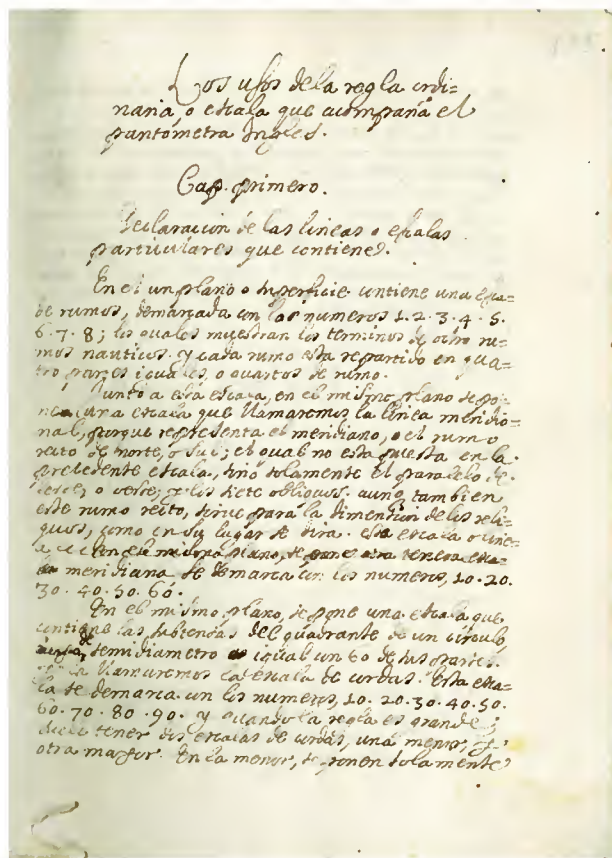 Los usos de la regla ordi=
naria, o escala que acompaña el
pantómetra Ingles.
Cap. primero.
Declaracion de las lineas o escalas
particulares que contiene.
En el un plano o superficie contiene una esca=
de rumos, demarcada con los numeros 1. 2. 3. 4. 5.
6. 7. 8; los quales muestran los terminos de ocho ru=
mos nauticos. y cada rumo esta repartido en qua=
tro partes iguales, o quartos de rumo.
Junto a esta escala, en el mismo plano se po=
ne una escala que llamaremos la linea meridio=
nal, porque representa el meridiano, o el rumo
recto de norte, o Sul; el qual no esta puesta en la
precedente escala, sino solamente el paralelo de
leste, o oeste; y los siete obliquos. aunq tambien
este rumo recto, sirve para la dimension de los reli=
quos, como en su lugar se dira. esta escala o line=
a en el mismo plano, se pone otra tercera esca=
meridiana se demarca con los numeros, 10. 20.
30. 40. 50. 60.
En el mismo plano, se pone una escala que
contiene las subtensas del quadrante de un circulo
semidiametro es igual con 60 de sus partes.
llamaremos la escala de cordas. Esta esca=
la se demarca con los numeros, 10. 20. 30. 40. 50.
60. 70. 80. 90. y quando la regla es grande;
suele tener dos escalas de cordas, una menor, y
otra mayor. En la menor, se ponen solamente